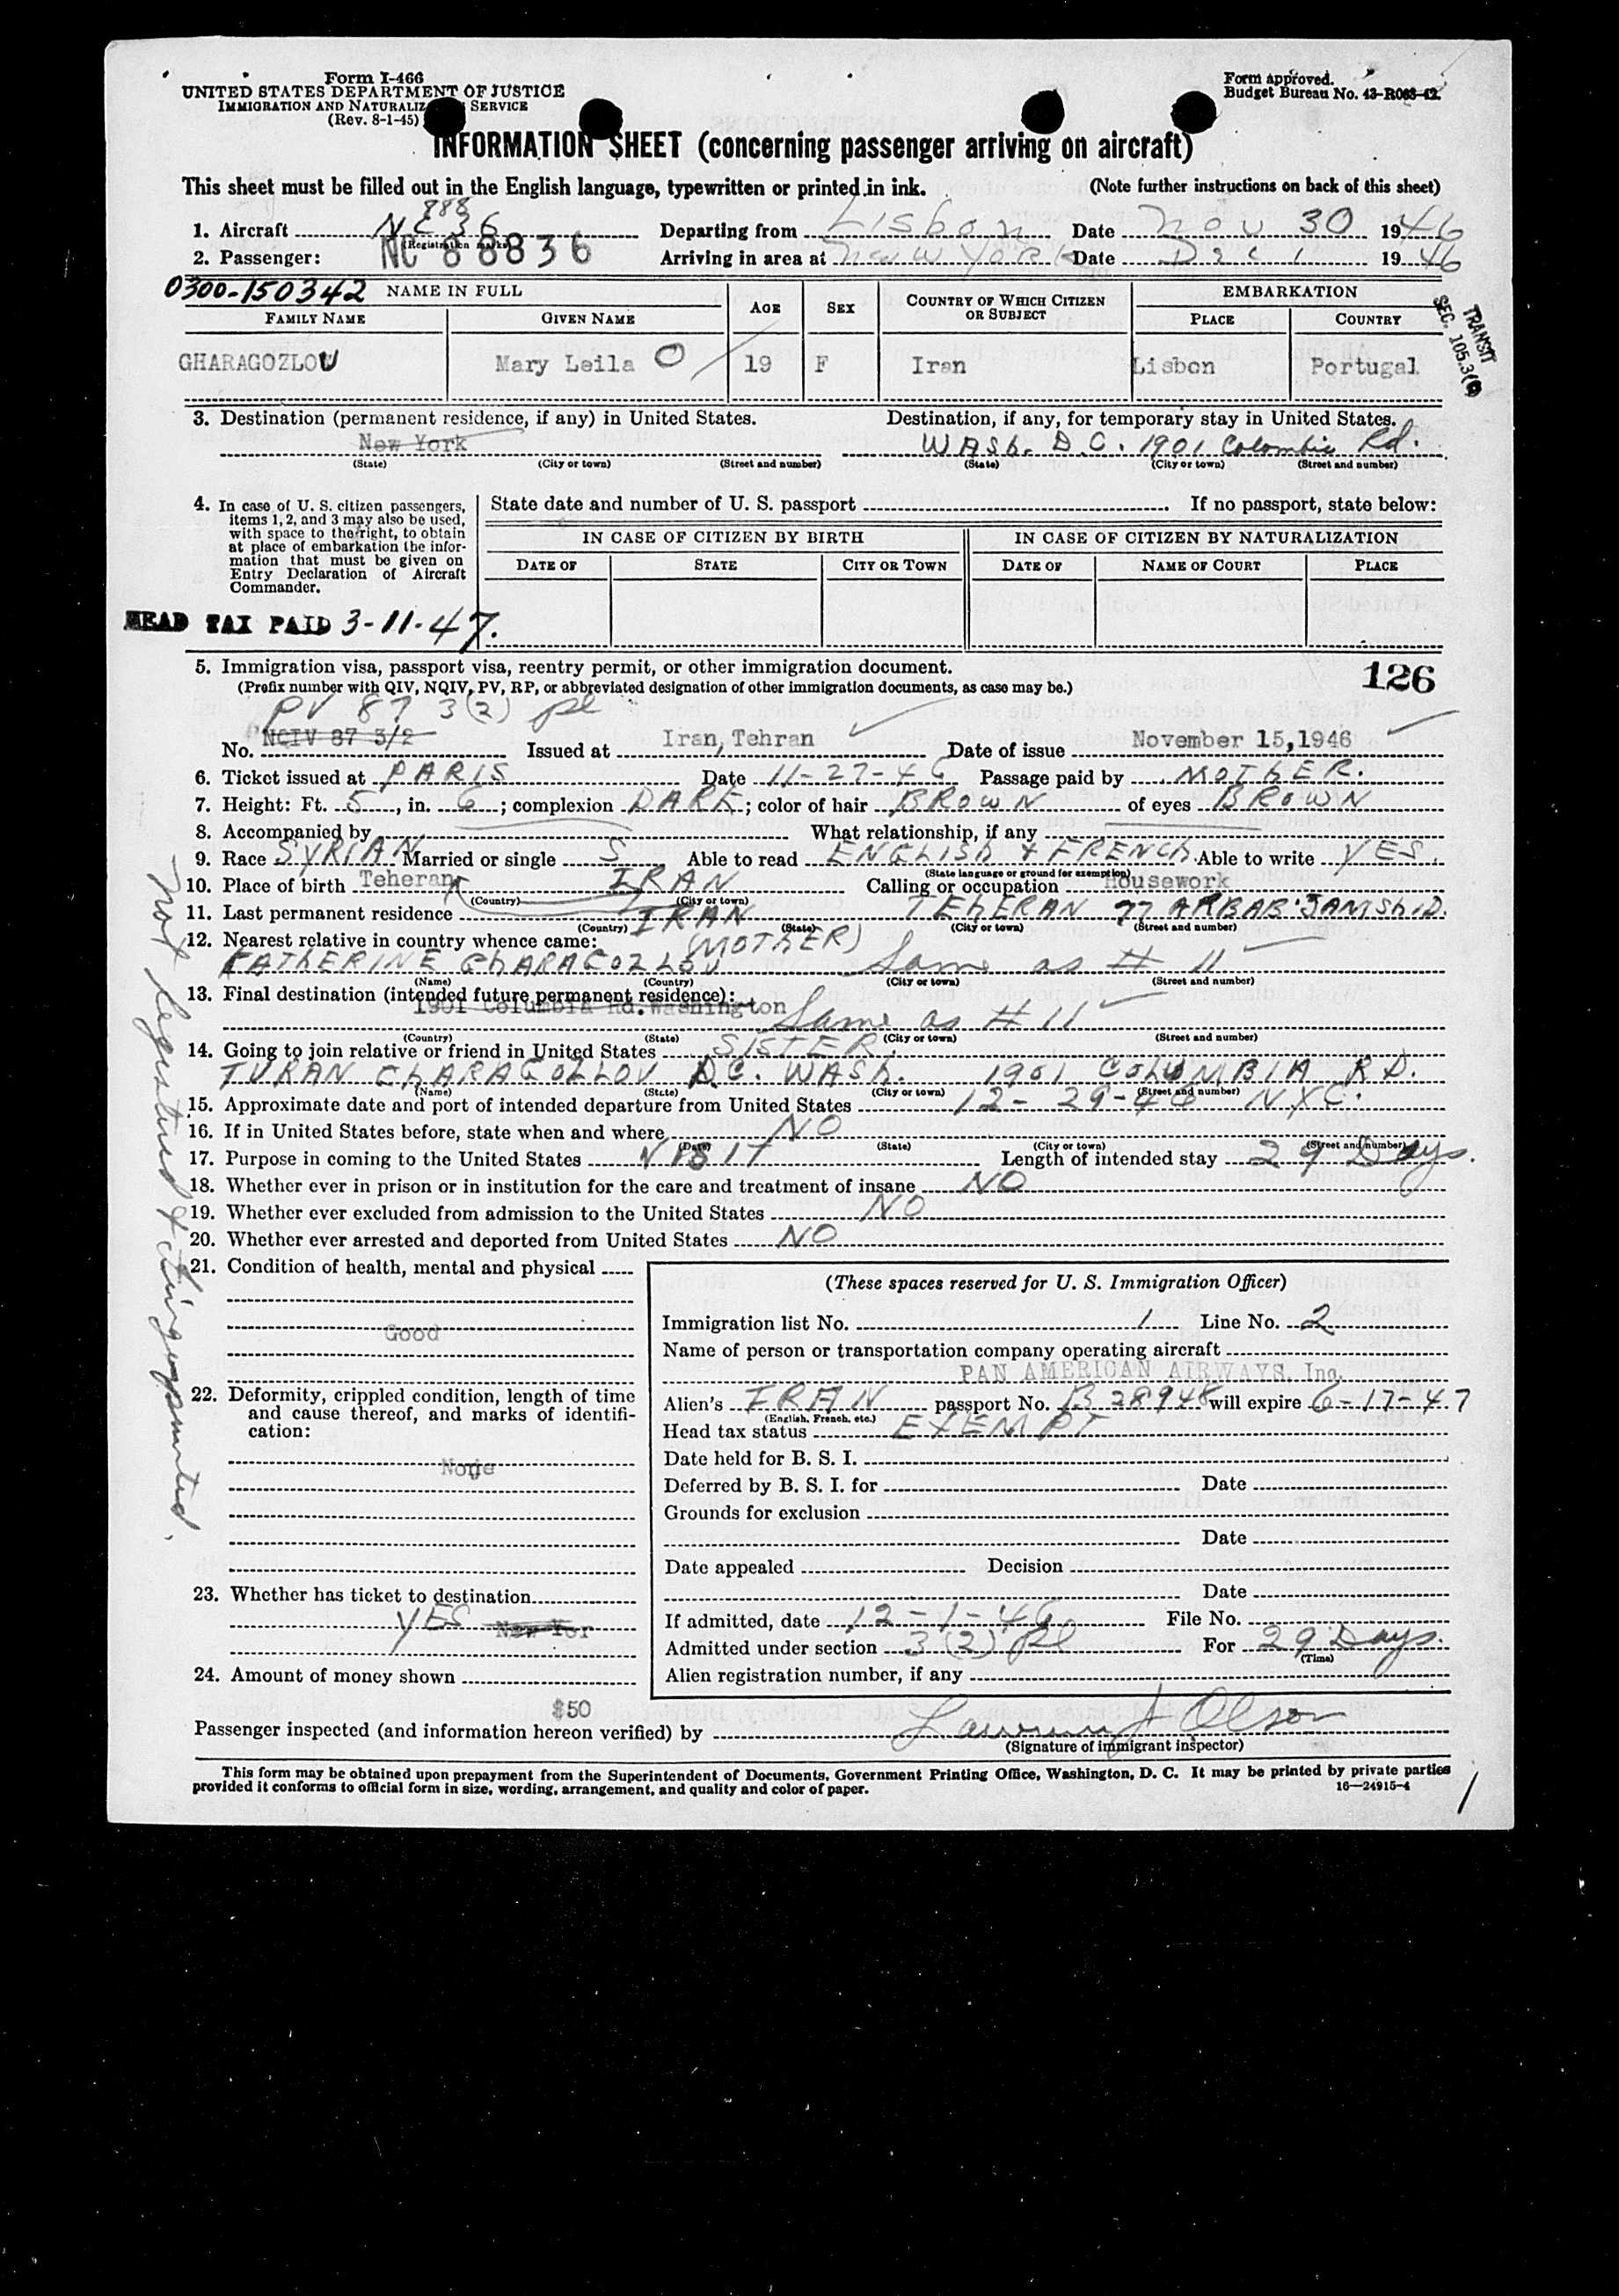 Form I-466
UNITED STATES DEPARTMENT OF JUSTICE
IMMIGRATION AND NATURALIZ SERVICE
(Rev. 8-1-45)
Form approved.
Budget Bureau No. 43-R063-42.
INFORMATION SHEET (concerning passenger arriving on aircraft)
This sheet must be filled out in the English language, typewritten or printed in ink. (Note further instructions on back of this sheet)
888
1. Aircraft NC 36 Departing from Lisbon Date Nov 30 1946
(Registration marks)
2. Passenger: NC 88836 Arriving in area at New York Date Dec 1 1946
0300-150342 NAME IN FULL AGE SEX COUNTRY OF WHICH CITIZEN OR SUBJECT EMBARKATION
FAMILY NAME GIVEN NAME PLACE COUNTRY
TRANSIT
SEC. 105.3(
GHARAGOZLOU Mary Leila O 19 F Iran Lisbon Portugal
3. Destination (permanent residence, if any) in United States. Destination, if any, for temporary stay in United States.
New York WASh. D.C. 1901 Colombia Rd.
(State) (City or town) (Street and number) (State) (City or town) (Street and number)
4. In case of U. S. citizen passengers, items 1, 2, and 3 may also be used, with space to the right, to obtain at place of embarkation the information that must be given on Entry Declaration of Aircraft Commander.
State date and number of U. S. passport If no passport, state below:
IN CASE OF CITIZEN BY BIRTH IN CASE OF CITIZEN BY NATURALIZATION
DATE OF STATE CITY OR TOWN DATE OF NAME OF COURT PLACE
HEAD TAX PAID 3-11-47.
5. Immigration visa, passport visa, reentry permit, or other immigration document. 126
(Prefix number with QIV, NQIV, PV, RP, or abbreviated designation of other immigration documents, as case may be.)
PV 87 3(2) pl
No. NCIV 87 3/2 Issued at Iran, Tehran Date of issue November 15,1946
6. Ticket issued at PARIS Date 11-27-46 Passage paid by MOTHER.
7. Height: Ft. 5, in. 6; complexion DARK; color of hair BROWN of eyes BROWN
8. Accompanied by What relationship, if any
9. Race SYRIAN Married or single S Able to read ENGLISh & FRENCH Able to write YES.
(State language or ground for exemption)
10. Place of birth Teheran IRAN Calling or occupation Housework
(Country) (City or town)
11. Last permanent residence IRAN TEhERAN 77 ARBAB JAMShID.
(Country) (State) (City or town) (Street and number)
12. Nearest relative in country whence came: (MOTHER)
KATHERINE GhARAGOZLOU Same as # 11
(Name) (Country) (City or town) (Street and number)
13. Final destination (intended future permanent residence):
1901 Columbia Rd. Washington Same as # 11
(Country) (State) (City or town) (Street and number)
14. Going to join relative or friend in United States SISTER.
TURAN GhARAGOZLOU D.C. WASh. 1901 COLUMBIA RD.
(Name) (State) (City or town) (Street and number)
15. Approximate date and port of intended departure from United States 12-29-46 NYC.
16. If in United States before, state when and where NO
(Date) (State) (City or town) (Street and number)
17. Purpose in coming to the United States VISIT Length of intended stay 29 Days.
18. Whether ever in prison or in institution for the care and treatment of insane NO
19. Whether ever excluded from admission to the United States NO
20. Whether ever arrested and deported from United States NO
21. Condition of health, mental and physical
Good
22. Deformity, crippled condition, length of time and cause thereof, and marks of identification:
None
23. Whether has ticket to destination
YES New Yor
24. Amount of money shown
$50
(These spaces reserved for U. S. Immigration Officer)
Immigration list No. 1 Line No. 2
Name of person or transportation company operating aircraft
PAN AMERICAN AIRWAYS, Inc.
Alien's IRAN passport No. B 28948 will expire 6-17-47
(English, French, etc.)
Head tax status EXEMPT
Date held for B. S. I.
Deferred by B. S. I. for Date
Grounds for exclusion
Date
Date appealed Decision
Date
If admitted, date 12-1-46 File No.
Admitted under section 3(2) pl For 29 Days.
(Time)
Alien registration number, if any
Passenger inspected (and information hereon verified) by Lawrence J Olson
(Signature of immigrant inspector)
This form may be obtained upon prepayment from the Superintendent of Documents, Government Printing Office, Washington, D. C. It may be printed by private parties
provided it conforms to official form in size, wording, arrangement, and quality and color of paper. 16—24915-4
not registered & fingerprinted.